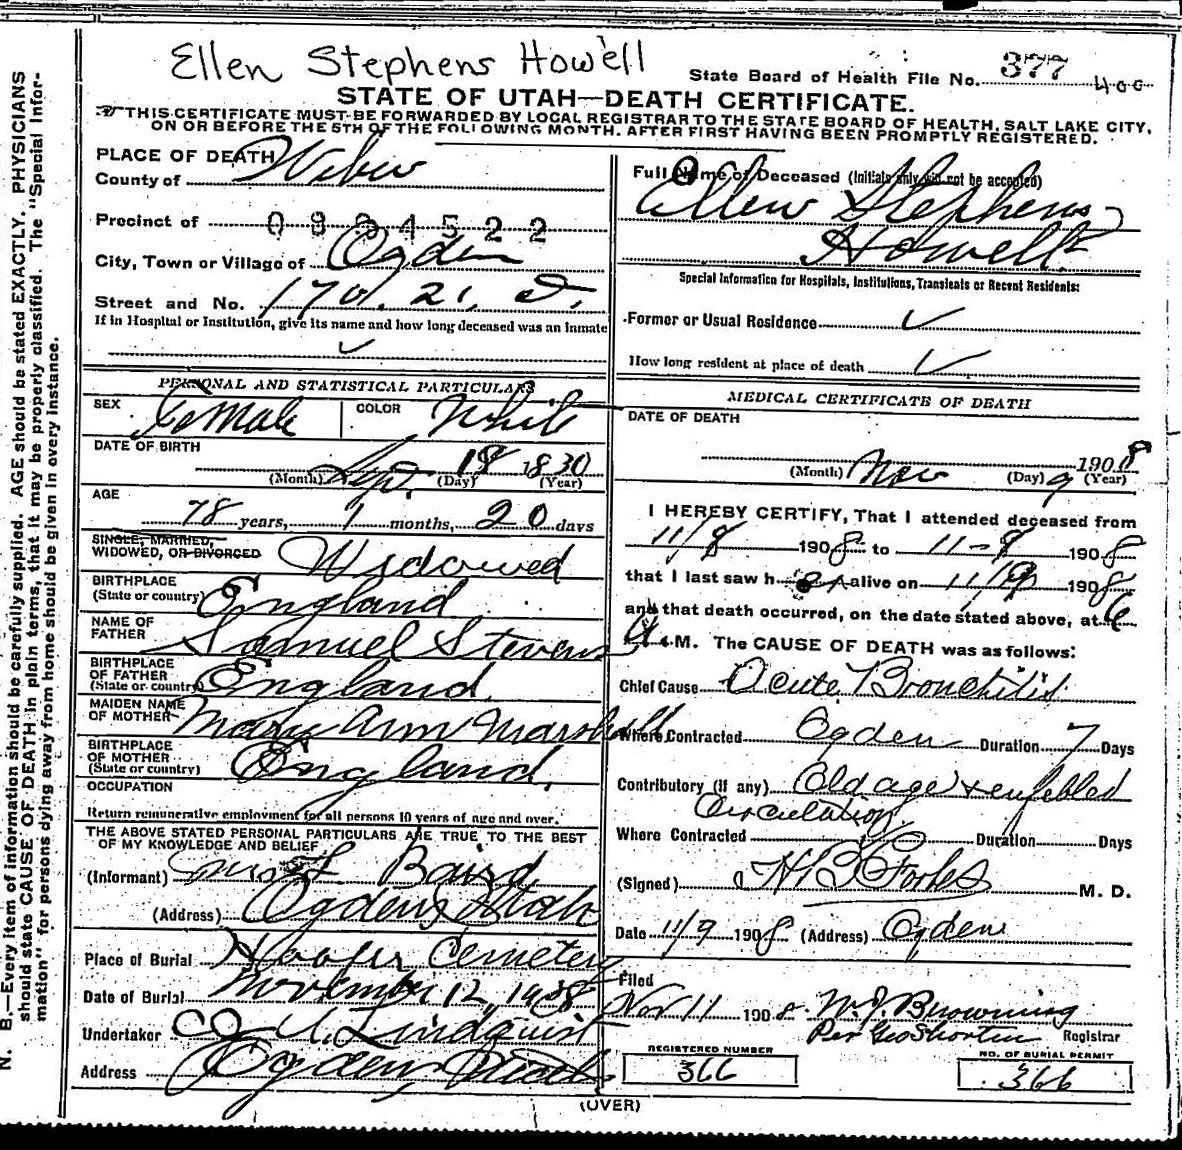 Ellen Stephens Howell
State Board of Health File No. 377 400
STATE OF UTAH—DEATH CERTIFICATE.
THIS CERTIFICATE MUST BE FORWARDED BY LOCAL REGISTRAR TO THE STATE BOARD OF HEALTH, SALT LAKE CITY,
ON OR BEFORE THE 5TH OF THE FOLLOWING MONTH. AFTER FIRST HAVING BEEN PROMPTLY REGISTERED.
N. B.—Every item of information should be carefully supplied. AGE should be stated EXACTLY. PHYSICIANS
should state CAUSE OF DEATH in plain terms, that it may be properly classified. The "Special Infor-
mation" for persons dying away from home should be given in every instance.
PLACE OF DEATH
County of Weber
Precinct of
City, Town or Village of Ogden
Street and No. 170. 21. St.
If in Hospital or Institution, give its name and how long deceased was an inmate
✓
PERSONAL AND STATISTICAL PARTICULARS
SEX Female COLOR White
DATE OF BIRTH
Sept. 18 1830
(Month) (Day) (Year)
AGE
78 years, 1 months, 20 days
SINGLE, MARRIED,
WIDOWED, OR DIVORCED Widowed
BIRTHPLACE
(State or country) England
NAME OF
FATHER Samuel Stevens
BIRTHPLACE
OF FATHER
(State or country) England
MAIDEN NAME
OF MOTHER Mary Ann Marshall
BIRTHPLACE
OF MOTHER
(State or country) England,
OCCUPATION
Return remunerative employment for all persons 10 years of age and over.
THE ABOVE STATED PERSONAL PARTICULARS ARE TRUE TO THE BEST
OF MY KNOWLEDGE AND BELIEF
(Informant) Baird
(Address) Ogden Utah
Place of Burial Hooper Cemetery
Date of Burial November 12, 1908
Undertaker Lindquist
Address Ogden Utah
Full Name of Deceased (Initials only will not be accepted)
Ellen Stephens
Howell
Special Information for Hospitals, Institutions, Transients or Recent Residents:
Former or Usual Residence ✓
How long resident at place of death ✓
MEDICAL CERTIFICATE OF DEATH
DATE OF DEATH
Nov 9 1908
(Month) (Day) (Year)
I HEREBY CERTIFY, That I attended deceased from
11/8 1908 to 11-9 1908
that I last saw her alive on 11/9 1908
and that death occurred, on the date stated above, at 6
A.M. The CAUSE OF DEATH was as follows:
Chief Cause Acute Bronchitis
Where Contracted Ogden Duration 7 Days
Contributory (if any) Old age & enfebled
Circulation
Where Contracted Duration Days
(Signed) Forbes M. D.
Date 11/9 1908 (Address) Ogden
Filed
Nov 11 1908 W. J. Browning
Per Geo Shorten Registrar
REGISTERED NUMBER
366
NO. OF BURIAL PERMIT
366
(OVER)